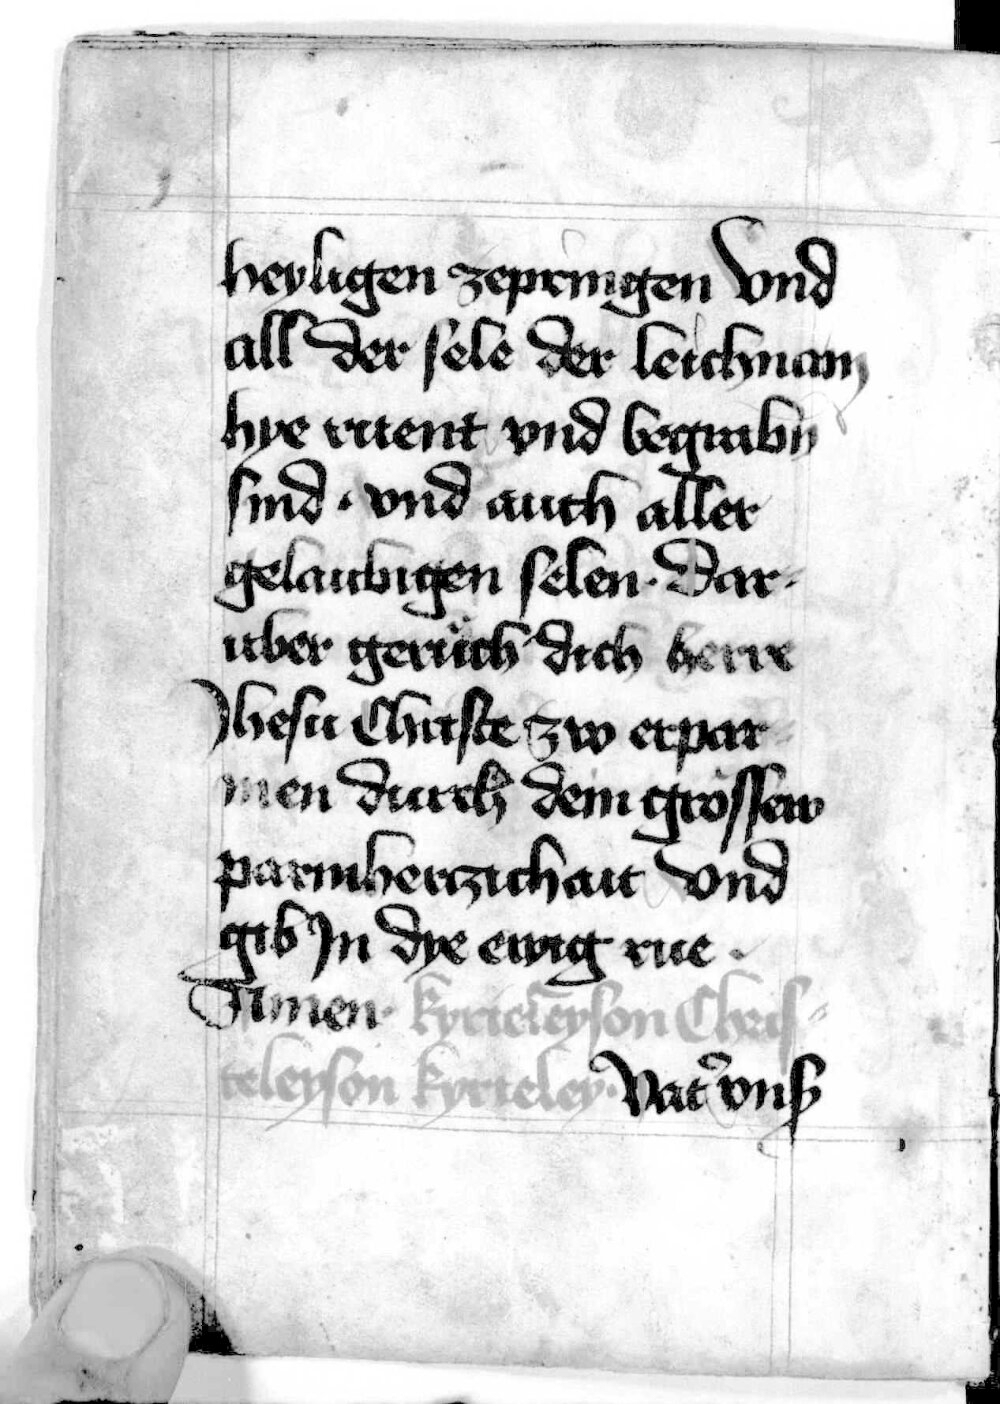 heyligen zepringen Vnd
all der sele der leichnam
hye rueent vnd begrabn
sind · vnd auch aller
gelaubigen selen · Dar-
uber geruͤch dich herre
Jhesu Christe zw erpar
men durch dein grössew
parmherczichait Vnd
gib Jn dye ewig rue ·
Amen · kyrieleyson Chris-
teleyson kyrieley · Vat͛ vnß